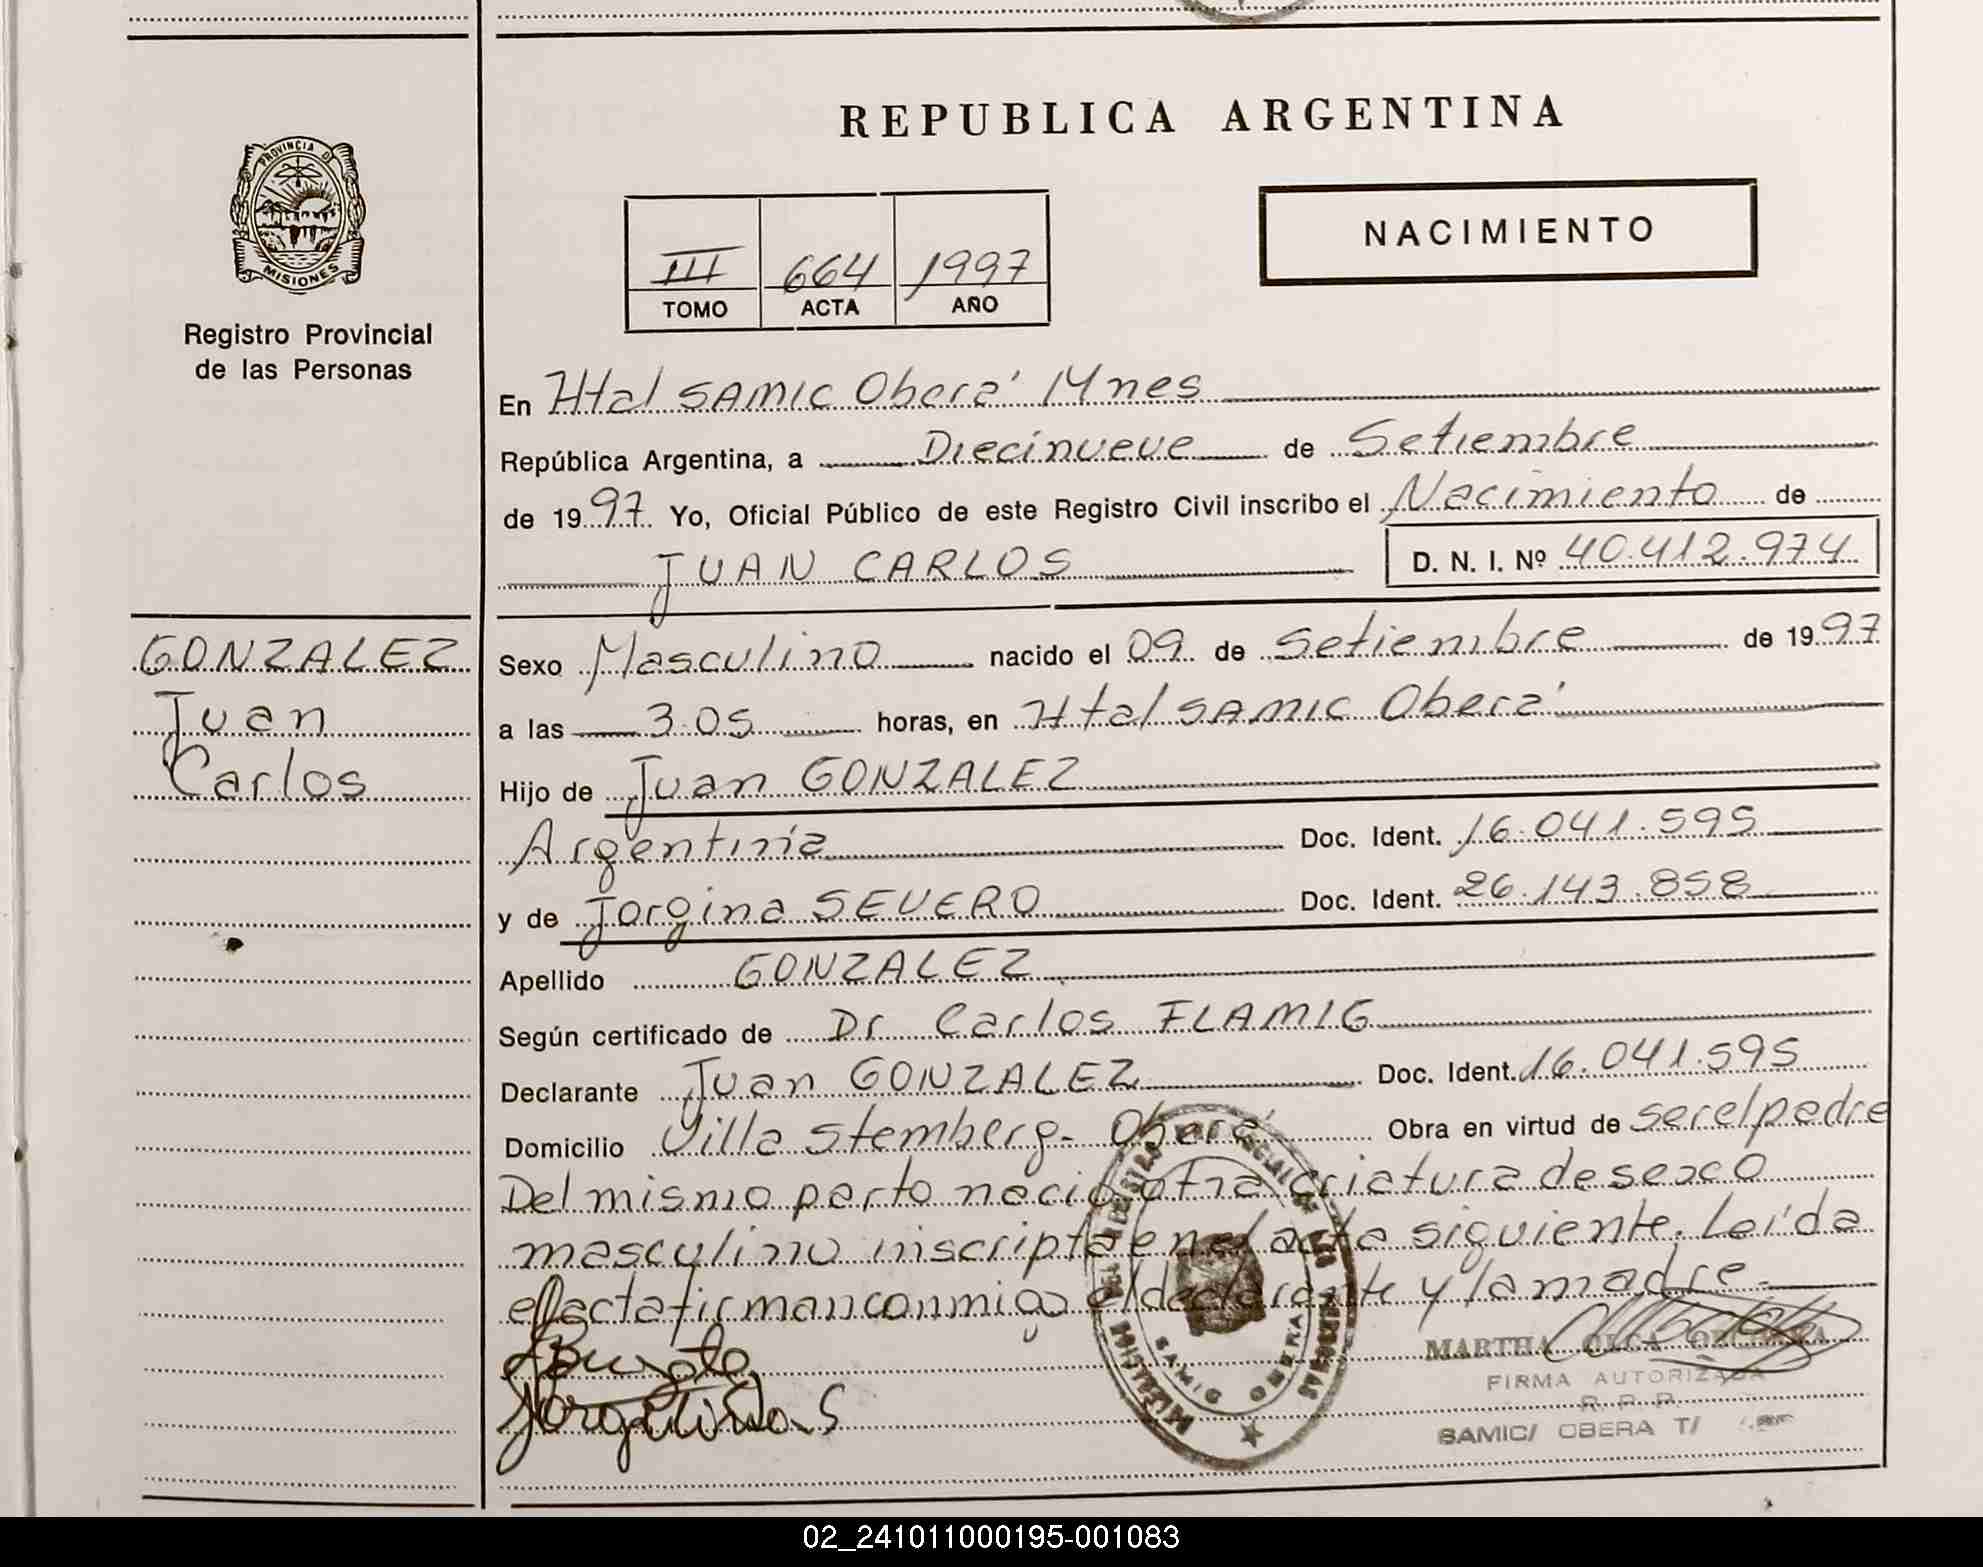 REPUBLICA ARGENTINA
PROVINCIA D
MISIONES
Registro Provincial
de las Personas
NACIMIENTO
III 664 1997
TOMO ACTA AÑO
En Htal SAMIC Oberá Mnes
República Argentina, a Diecinueve de Setiembre
de 1997 Yo, Oficial Público de este Registro Civil inscribo el Nacimiento de
JUAN CARLOS D. N. I. Nº 40.412.974
GONZALEZ
Juan
Carlos
Sexo Masculino nacido el 09 de Setiembre de 1997
a las 3.05 horas, en Htal SAMIC Oberá
Hijo de Juan GONZALEZ
Argentina Doc. Ident. 16.041.595
y de Jorgina SEVERO Doc. Ident. 26.143.858
Apellido GONZALEZ
Según certificado de Dr Carlos FLAMIG
Declarante Juan GONZALEZ Doc. Ident. 16.041.595
Domicilio Villa Stemberg- Oberá Obra en virtud de ser el padre
Del mismo parto nació otra criatura de sexo
masculino inscripta en el acta siguiente. Leída
el acta firman conmigo el declarante y la madre.-
SAMIC OBERA
MARTHA OLGA
FIRMA AUTORIZADA
R. P. P.
SAMIC/ OBERA T/
02_241011000195-001083